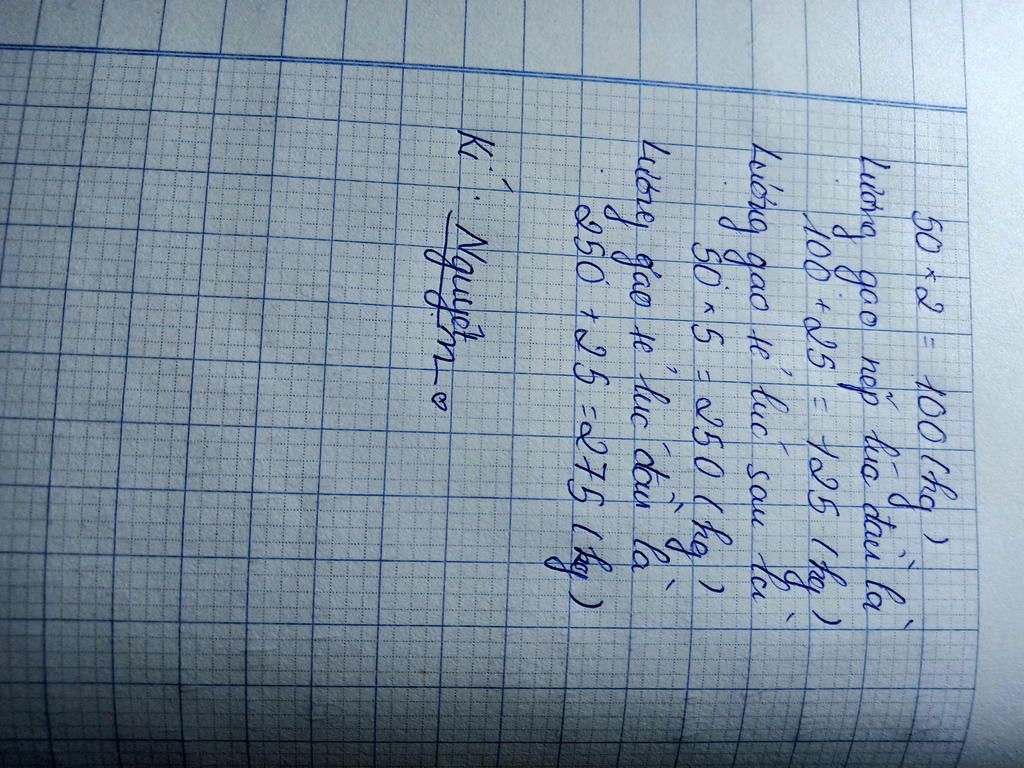 50 × 2 = 100 (kg)
Lượng gạo nếp lúc đầu là
100 + 25 = 125 (kg)
Lượng gạo tẻ lúc sau là
50 × 5 = 250 (kg)
Lượng gạo tẻ lúc đầu là
250 + 25 = 275 (kg)
Kí : Nguyệt